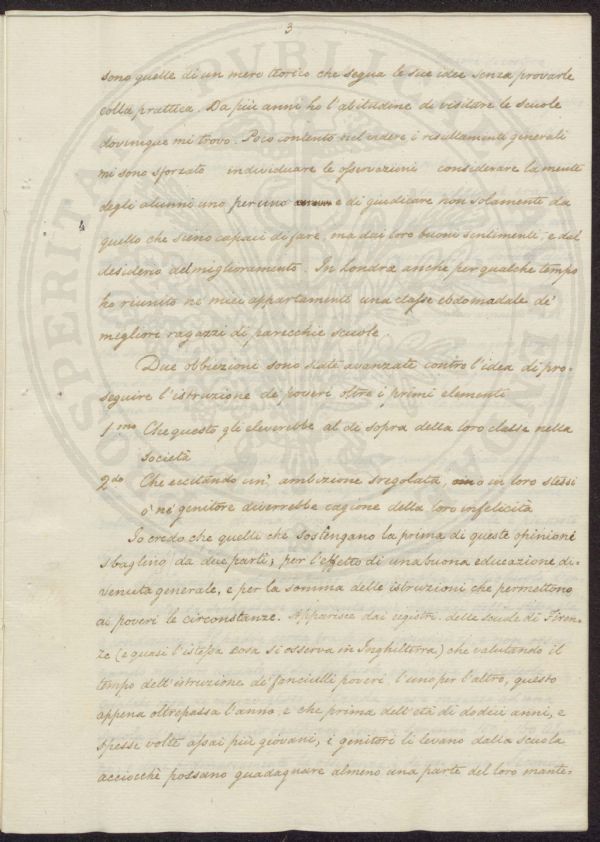 3
sono quelle di un mero teorico che segua le sue idee senza provarle
colla prattica. Da più anni ho l'abitudine di visitare le scuole
dovunque mi trovo. Poco contento nel vedere i risultamenti generali
mi sono sforzato individuare le osservazioni considerare la mente
degli alunni uno per uno e di giudicare non solamente da
quello che sieno capaci di fare, ma dai loro buoni sentimenti, e dal
desiderio del miglioramento. In Londra anche per qualche tempo
ho riunito ne' miei appartamenti una classe ebdomadale de'
migliori ragazzi di parecchie scuole.
Due obbiezioni sono state avanzate contro l'idea di pro-
seguire l'istruzione de' poveri oltre i primi elementi
1mo Che questo gli eleverebbe al di sopra della loro classe nella
società
2do Che eccitando un' ambizione sregolata, o in loro stessi
o ne' genitori diverrebbe cagione della loro infelicità
Io credo che quelli che sostengano la prima di queste opinioni
sbaglino da due parti, per l'effetto di una buona educazione di-
venuta generale, e per la somma delle istruzioni che permettono
ai poveri le circonstanze. Apparisce dai registri delle scuole di Firen-
ze (e quasi l'istessa cosa si osserva in Inghilterra) che valutando il
tempo dell'istruzione de' fanciulli poveri l'uno per l'altro, questo
appena oltrepassa l'anno, e che prima dell'età di dodici anni, e
spesse volte assai più giovani, i genitori li levano dalla scuola
acciocchè possano guadagnare almeno una parte del loro mante-
PUBLICAE
PROSPERITATI